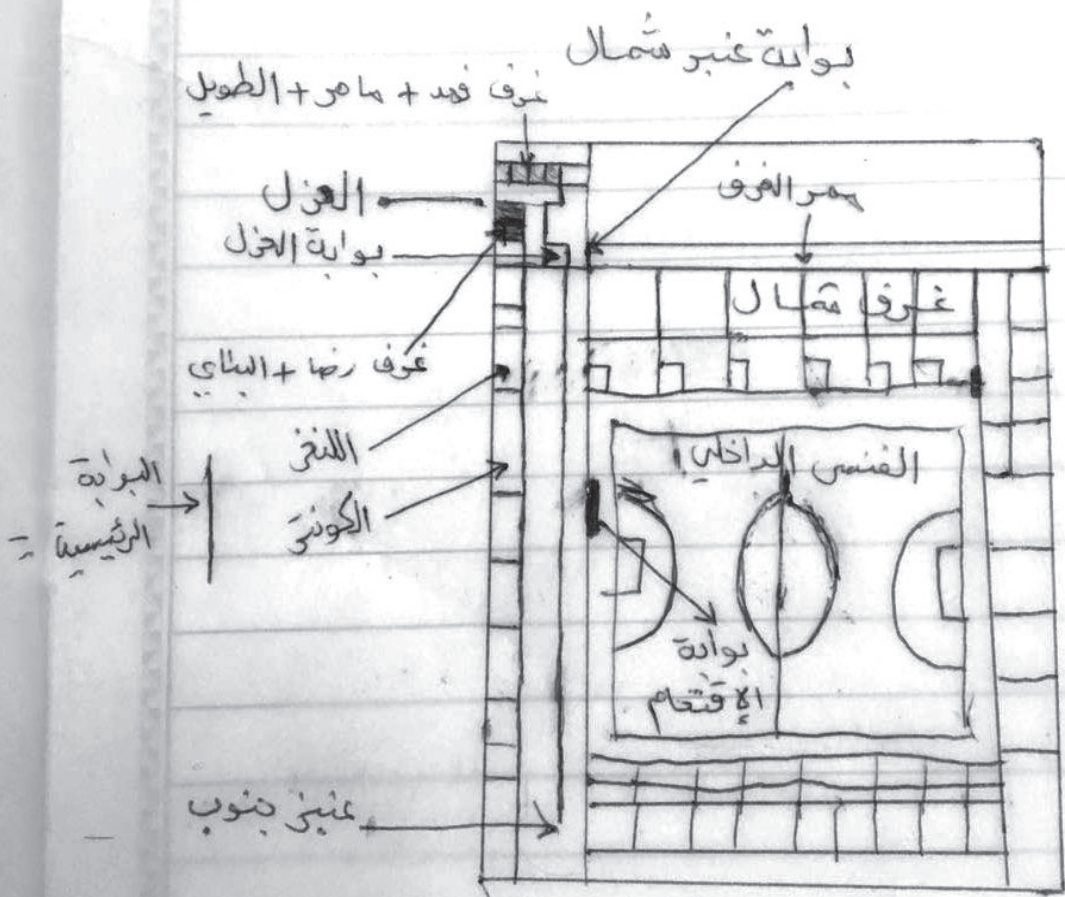 بوابة عنبر شمال
غرف فهد + ماهر + الطويل
العزل
ممر الغرف
بوابة العزل
غرف شمال
غرف رضا +
الفنس الداخلي
البوابة
الرئيسية
بوابة
الإقتحام
عنبر جنوب